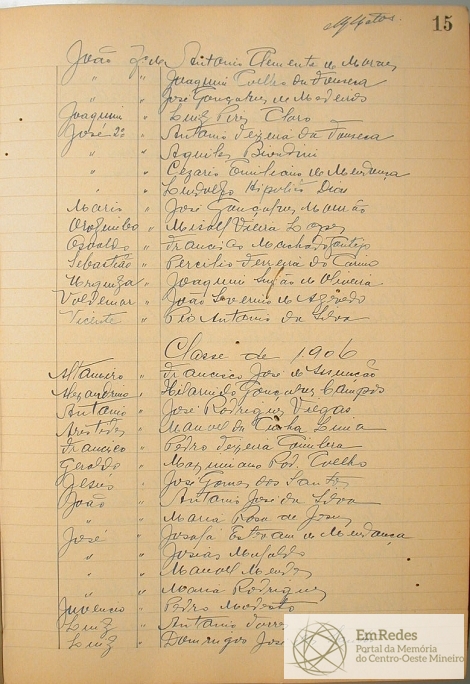 15
João f. de Antonio Clemente de Moraes
" " Joaquim Coelho da Fonseca
" " José Gonçalves de Medeiros
Joaquim " Luiz Pires Claro
José 2º " Antonio Teixeira da Fonseca
" " Aquiles Biondini
" " Cezario Emiliano de Mendonça
" " Lindolfo Hipolito Dias
Mario " José Gonçalves Mourão
" Misael Vieira Lopes
Osvaldo " Francisco Machado
Sebastião " Percilio Ferreira do Carmo
Urquiza " Joaquim de Oliveira
Voldemar " João Severino de Azevedo
Vicente " Pio Antonio da Silva
Classe de 1906
Altamiro " Francisco José de Assunção
Alexandrino " Hilarindo Gonçalves Campos
Antonio " José Rodrigues Viegas
Aristides " Manoel da Cunha Lima
Francisco " Pedro Teixeira
Geraldo " Maximiano Rod. Coelho
Jesus " José Gomes dos Santos
João " Antonio José da Silva
" " Maria Rosa de Jesus
José " Josafá Estevam de Mendonça
" " Josias
" " Manoel Mendes
" " Maria Rodrigues
Juvencio " Pedro Modesto
Luiz " Antonio
Luiz " Domingos José
EmRedes
Portal da Memória
do Centro-Oeste Mineiro